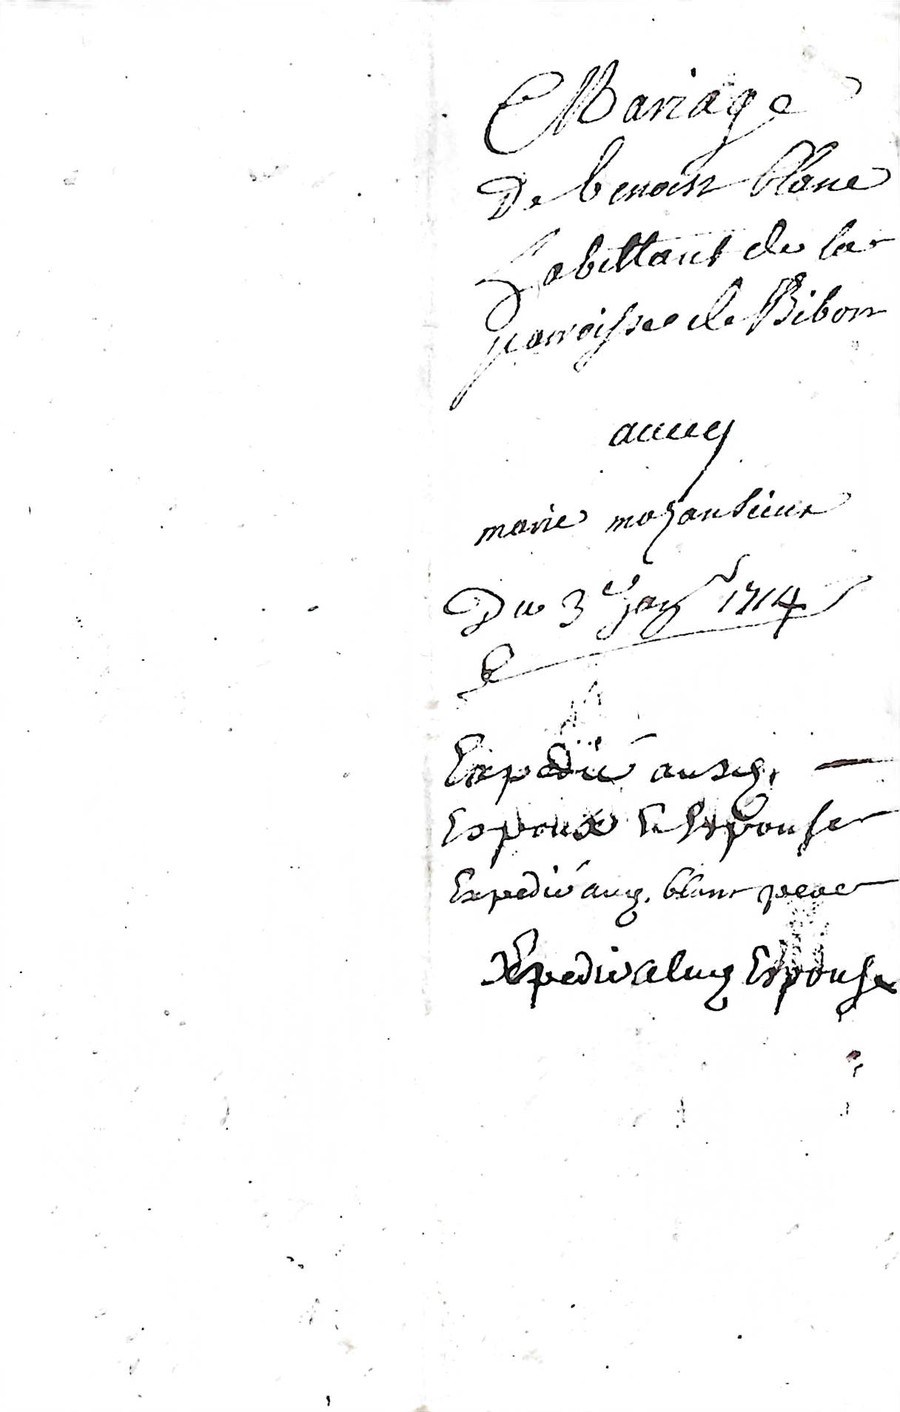 Mariage
De benoist blanc
habittant de la
parroisse de Ribon
avecq
marie
Du 3e Janr 1714
Expedié auxd.
Espoux & Espouse
Expedié aud. blanc pere
Expedié alad Espouse